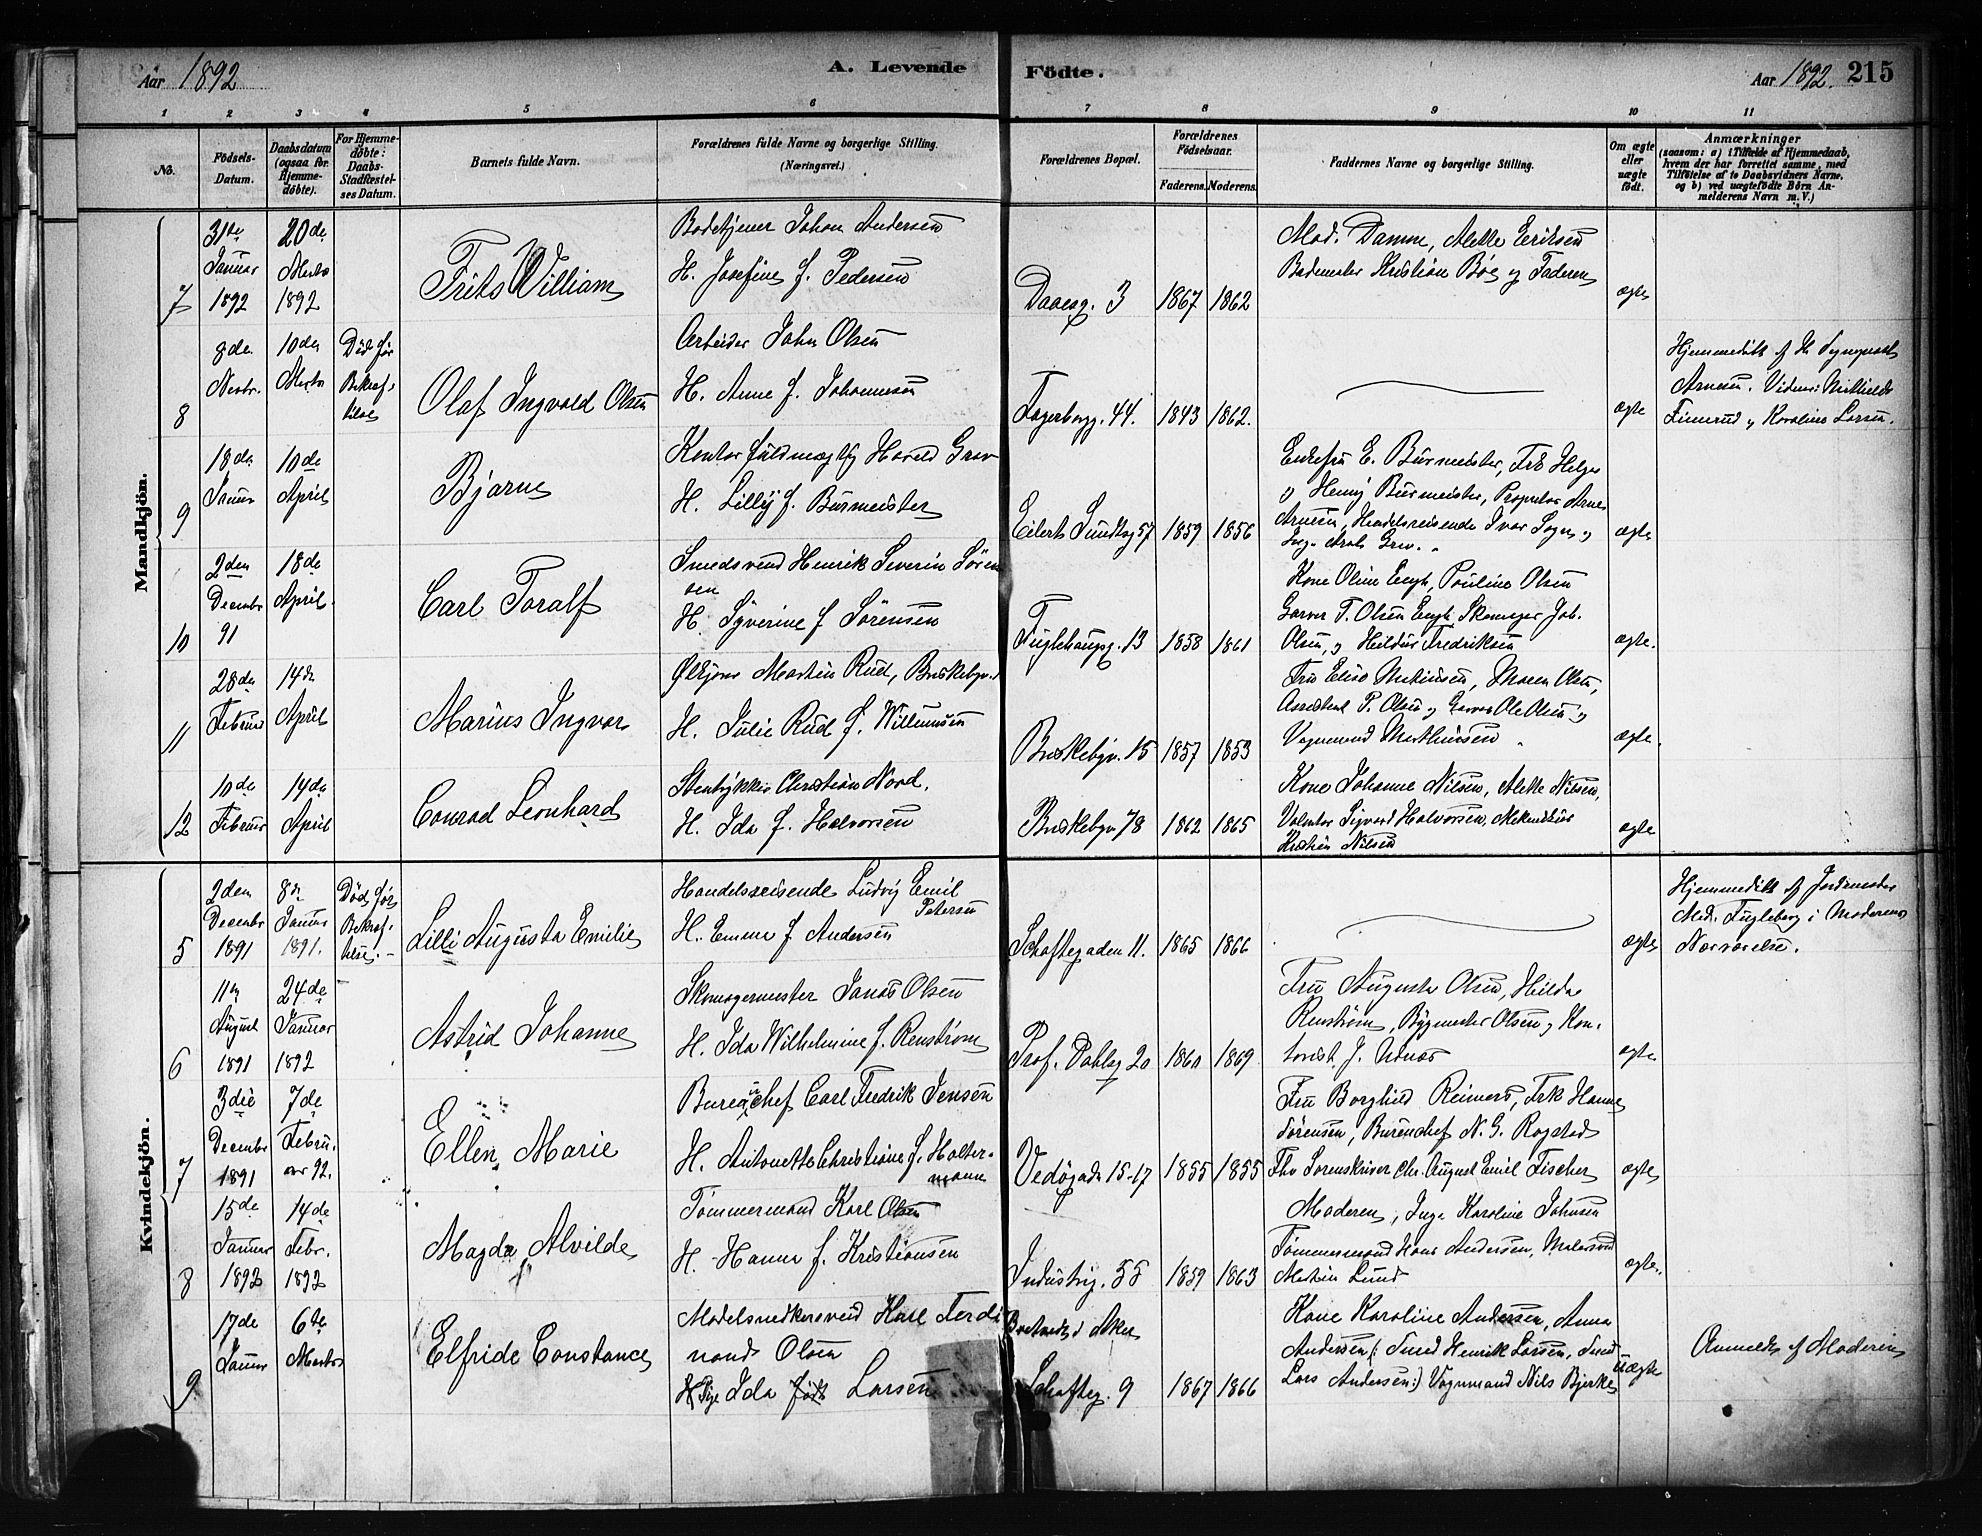 Aar 1892
A. Levende
Födte.
Aar 1892.
215
1 2 3 4 5 6 7 8 9 10 11
No.
Födsels-
Datum.
Daabsdatum
(ogsaa for
Hjemme-
döbte).
For Hjemme-
döbte:
Daabs-
Stadfæstel-
ses Datum.
Barnets fulde Navn.
Forældrenes fulde Navne og borgerlige Stilling.
(Næringsvei.)
Forældrenes Bopæl.
Forældrenes
Födselsaar.
Faderens. Moderens.
Faddernes Navne og borgerlige Stilling.
Om ægte
eller
uægte
födt.
Anmærkninger
(saasom: a) i Tilfælde af Hjemmedaab,
hvem der har forrettet samme, med
Tilföielse af to Daabsvidners Navne,
og b) ved uægtefödte Börn An-
melderens Navn m. V.)
Mandkjön.
7
31te
Januar
1892
20de
Marts
1892
Frits William
Badetjener Johan Andersen
H. Josefine f. Pedersen
Daaesg. 3
1867
1862
Mod. Damm, Alette Eriksen
Bademester Kristian Bøe og Faderen
ægte
8
8de
10de
Marts
Død før
Bekræf-
telse
Olaf Ingvald Olsen
Arbeider John Olsen
H. Anne f. Johannesen
Fagerborgg. 44.
1843
1862.
ægte
Hjemmedøbt af
Arnesen. Vidner: Mathilde
Finerud og Karoline Larsen.
9
18de
Januar
10de
April
Bjarne
Kontorfuldmægtig Harald Grav
H. Lilly f. Burmeister
Eilert Sundtsg 57
1859
1856
Enkefru E. Burmeister, Frk Helga
og Henny Burmeister, Proprietær Arne
Arnesen, Handelsreisende Ivar
Grav.
ægte
10
2den
Decembr
91
18de
April
Carl Toralf
Smedsvend Henrik Severin Søren
sen
H. Syverine f Sørensen
Fuglehaugg. 13
1858
1861
Kone Oline Engh, Pauline Olsen
Garver T. Olsen Engh, Skomager Joh.
Olsen, og Heldur Fredriksen
ægte.
11
28de
Februar
14de
April
Marius Ingvar
Ølkjører Martin Rud, Briskebyv.
H. Julie Rud f. Willumsen
Briskebyv. 15
1857
1853
Fru Elise Mathisen, Maren Olsen,
Assistent P. Olsen og Garver Ole Olsen og
Vognmand Mathisen
ægte.
12
10de
Februar
14de
April
Conrad Leonhard
Stentrykker Christian Nord.
H. Ida f. Halvorsen
Briskebyv 78
1862
1865
Kone Johanne Nilsen, Alette Nilsen,
Sigvard Halvorsen, Mekanikus
Kristian Nilsen
ægte
Kvindekjön.
5
2den
Decembr
1891
8de
Januar
1891.
Død før
Bekræf-
telse. –
Lilli Augusta Emilie
Handelsreisende Ludvig Emil
Petersen
H. Emma f Andersen
Schaftegaden 11.
1865
1866
ægte
Hjemmedøbt af Jordmoder
Md. Fugleberg i Moderens
Nærværelse.
6
11te
August
1891
24de
Januar
1892
Astrid Johanne
Skomagermester Janas Olsen
H. Ida Wilhelmine f. Renstrøm
Prof. Dahlsg 20
1860
1869
Fru Augusta Olsen, Hilda
Renstrøm, Bygmester Olsen og Kon-
torist J. Udnæs
ægte
7
3die
Decembr
1891
7de
Febru-
ar 92.
Ellen Marie
Bureauchef Carl Fredrik Jensen
H. Antonette Christiane f. Holter-
mann
Vedøgade 15-17
1855
1855
Fru Borghild Reimers, Frk Hanne
Sørensen, Bureuchef N. G. Rogstad
Thv Sorenskriver Chr. August Emil Fischer
ægte
8
15de
Januar
1892
14de
Febr.
1892
Magda Alvilde
Tømmermand Karl Olsen
H. Hanna f. Kristiansen
Industrig. 55
1859
1863
Moderen, Inga Karoline Johnsen
Tømmermand Hans Andersen, Malersvend
Martin Lund
ægte.
9
17de
Januar
6te
Marts
Elfride Constance
Modelsnedkersvend Karl Ferdi
nand Olsen
Pige Ida født Larsen
i Aker
Schafteg. 9
1867
1866
Kone Karoline Andersen, Anna
Andersen (: Smed Henrik Larsen, Smed
Lars Andersen:) Vognmand Nils Bjerke
uægte
Anmeldt af Moderen